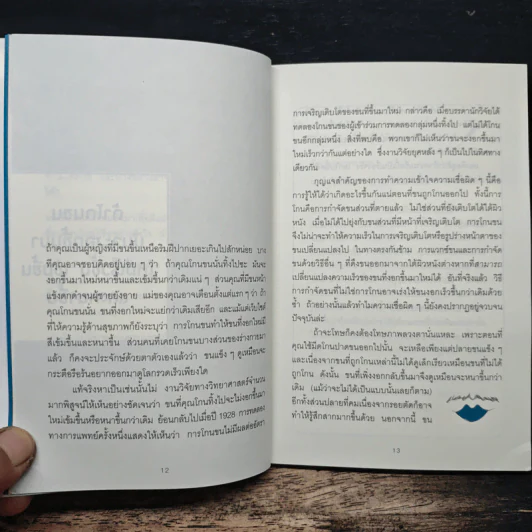 ถ้าคุณเป็นผู้หญิงที่มีขนขึ้นเหนือริมฝีปากเยอะเกินไปสักหน่อย บาง
ทีคุณอาจรอบคิดอยู่บ่อย ๆ ว่า ถ้าคุณโกนขนนั่นทิ้งไปซะ มันจะ
งอกขึ้นมาใหม่หนาและเข้มกว่าเดิมแน่ ๆ ส่วนคุณที่มีขนหน้า
แข้งดกดำจนผู้ชายยังอาย แม่ของคุณอาจเตือนตั้งแต่แรก ๆ ว่า ถ้า
คุณโกนขนนั่น ขนที่งอกใหม่จะแย่กว่าเดิมเสียอีก และแม้แต่เว็บไซต์
ที่ให้ความรู้ด้านสุขภาพก็ยังระบุว่า การโกนขนทำให้ขนที่งอกใหม่มี
สีเข้มขึ้นและหนาขึ้น ส่วนคนที่เคยโกนขนบางส่วนของร่างกายมา
แล้ว ก็คงจะประจักษ์ด้วยตาตัวเองแล้วว่า ขนแข็ง ๆ ดูเหมือนจะ
กระตือรือร้นอยากออกมาดูโลกรวดเร็วเพียงใด
แท้จริงหาเป็นเช่นนั้นไม่ งานวิจัยทางวิทยาศาสตร์จำนวน
มากพิสูจน์ให้เห็นอย่างชัดเจนว่า ขนที่คุณโกนทิ้งไปจะไม่งอกขึ้นมา
ใหม่เข้มขึ้นหรือหนาขึ้นกว่าเดิม ย้อนกลับไปเมื่อปี 1928 การทดลอง
ทางการแพทย์ครั้งหนึ่งแสดงให้เห็นว่า การโกนขนไม่มีผลต่ออัตรา
12
การเจริญเติบโตของขนที่ขึ้นมาใหม่ กล่าวคือ เมื่อบรรดานักวิจัยได้
ทดลองโกนขนของผู้เข้าร่วมการทดลองกลุ่มหนึ่งทิ้งไป แต่ไม่ได้โกน
ขนอีกกลุ่มหนึ่ง สิ่งที่พบคือ พวกเขาก็ไม่เห็นว่าขนจะงอกขึ้นมา
ใหม่เร็วกว่ากันแต่อย่างใด ซึ่งงานวิจัยยุคหลัง ๆ ก็เป็นไปในทิศทาง
เดียวกัน
กุญแจสำคัญของการทำความเข้าใจความเชื่อผิด ๆ นี้คือ
การรู้ให้ได้ว่าเกิดอะไรขึ้นกันแน่ตอนที่ขนถูกโกนออกไป ทั้งนี้การ
โกนคือการกำจัดขนส่วนที่ตายแล้ว ไม่ใช่ส่วนที่ยังเติบโตได้ใต้ผิว
หนัง เมื่อไม่ได้ไปยุ่งกับขนส่วนที่มีหน้าที่เจริญเติบโต การโกนขน
จึงไม่น่าจะทำให้ความเร็วในการเจริญเติบโตหรือรูปร่างหน้าตาของ
ขนเปลี่ยนแปลงไป ในทางตรงกันข้าม การแวกซ์ขนและการกำจัด
ขนด้วยวิธีอื่น ๆ ที่ดึงขนออกมาจากใต้ผิวหนังต่างหากที่สามารถ
เปลี่ยนแปลงความเร็วของขนที่งอกขึ้นมาใหม่ได้ อันที่จริงแล้ว วิธี
การกำจัดขนที่ไม่ใช่การโกนอาจเร่งให้ขนงอกเร็วขึ้นกว่าเดิมด้วย
ซ้ำ ถ้าอย่างนั้นแล้วทำไมความเชื่อผิด ๆ นี้ยังคงปรากฏอยู่จวบจน
ปัจจุบันล่ะ
ถ้าจะโทษก็คงต้องโทษภาพลวงตานั่นแหละ เพราะตอนที่
คุณใช้มีดโกนปาดขนออกไปนั้น จะเหลือเพียงแต่ปลายขนแข็ง ๆ
และเนื่องจากขนที่ถูกโกนเหล่านี้ไม่ได้ดูเล็กเรียวเหมือนขนที่ไม่ได้
ถูกโกน ดังนั้น ขนที่เพิ่งงอกกลับขึ้นมาจึงดูเหมือนจะหนาขึ้นกว่า
เดิม (แม้ว่าจะไม่ได้เป็นแบบนั้นเลยก็ตาม)
อีกทั้งส่วนปลายที่คมเนื่องจากรอยตัดก็อาจ
ทำให้รู้สึกสากมากขึ้นด้วย นอกจากนี้ ขน
13